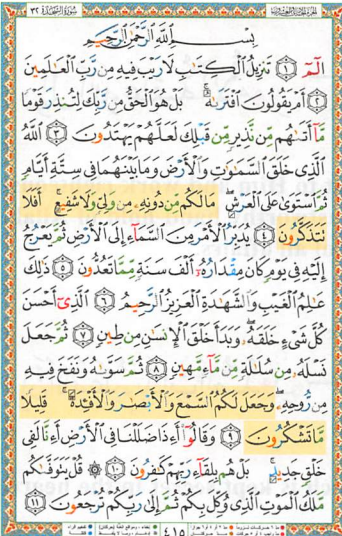 سورة السجدة ٣٢
بِسْمِ اللَّهِ الرَّحْمَٰنِ الرَّحِيمِ
الٓمٓ ١ تَنزِيلُ الْكِتَٰبِ لَا رَيْبَ فِيهِ مِن رَّبِّ الْعَٰلَمِينَ
٢ أَمْ يَقُولُونَ افْتَرَىٰهُ ۚ بَلْ هُوَ الْحَقُّ مِن رَّبِّكَ لِتُنذِرَ قَوْمًا
مَّآ أَتَىٰهُم مِّن نَّذِيرٍ مِّن قَبْلِكَ لَعَلَّهُمْ يَهْتَدُونَ ٣ اللَّهُ
الَّذِى خَلَقَ السَّمَٰوَٰتِ وَالْأَرْضَ وَمَا بَيْنَهُمَا فِى سِتَّةِ أَيَّامٍ
ثُمَّ اسْتَوَىٰ عَلَى الْعَرْشِ ۖ مَا لَكُم مِّن دُونِهِۦ مِن وَلِىٍّ وَلَا شَفِيعٍ ۚ أَفَلَا
تَتَذَكَّرُونَ ٤ يُدَبِّرُ الْأَمْرَ مِنَ السَّمَآءِ إِلَى الْأَرْضِ ثُمَّ يَعْرُجُ
إِلَيْهِ فِى يَوْمٍ كَانَ مِقْدَارُهُۥٓ أَلْفَ سَنَةٍ مِّمَّا تَعُدُّونَ ٥ ذَٰلِكَ
عَٰلِمُ الْغَيْبِ وَالشَّهَٰدَةِ الْعَزِيزُ الرَّحِيمُ ٦ الَّذِىٓ أَحْسَنَ
كُلَّ شَىْءٍ خَلَقَهُۥ ۖ وَبَدَأَ خَلْقَ الْإِنسَٰنِ مِن طِينٍ ٧ ثُمَّ جَعَلَ
نَسْلَهُۥ مِن سُلَٰلَةٍ مِّن مَّآءٍ مَّهِينٍ ٨ ثُمَّ سَوَّىٰهُ وَنَفَخَ فِيهِ
مِن رُّوحِهِۦ ۖ وَجَعَلَ لَكُمُ السَّمْعَ وَالْأَبْصَٰرَ وَالْأَفْـِٔدَةَ ۚ قَلِيلًا
مَّا تَشْكُرُونَ ٩ وَقَالُوٓا۟ أَءِذَا ضَلَلْنَا فِى الْأَرْضِ أَءِنَّا لَفِى
خَلْقٍ جَدِيدٍۭ ۚ بَلْ هُم بِلِقَآءِ رَبِّهِمْ كَٰفِرُونَ ١٠ ۞ قُلْ يَتَوَفَّىٰكُم
مَّلَكُ الْمَوْتِ الَّذِى وُكِّلَ بِكُمْ ثُمَّ إِلَىٰ رَبِّكُمْ تُرْجَعُونَ ١١
٤١٥